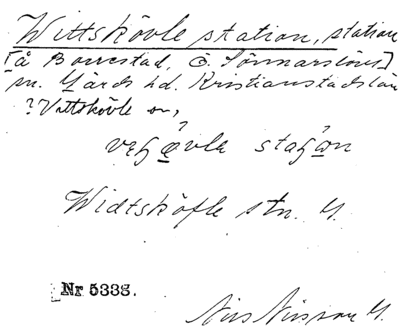 Wittskövle station, station
[å Borrestad, Ö. Sönnarslövs]
m. Gärds hd. Kristianstads län
? Vittskövle sn,
Widtsköfle stn. G.
Nr 5333.
Nils Nilsson G.